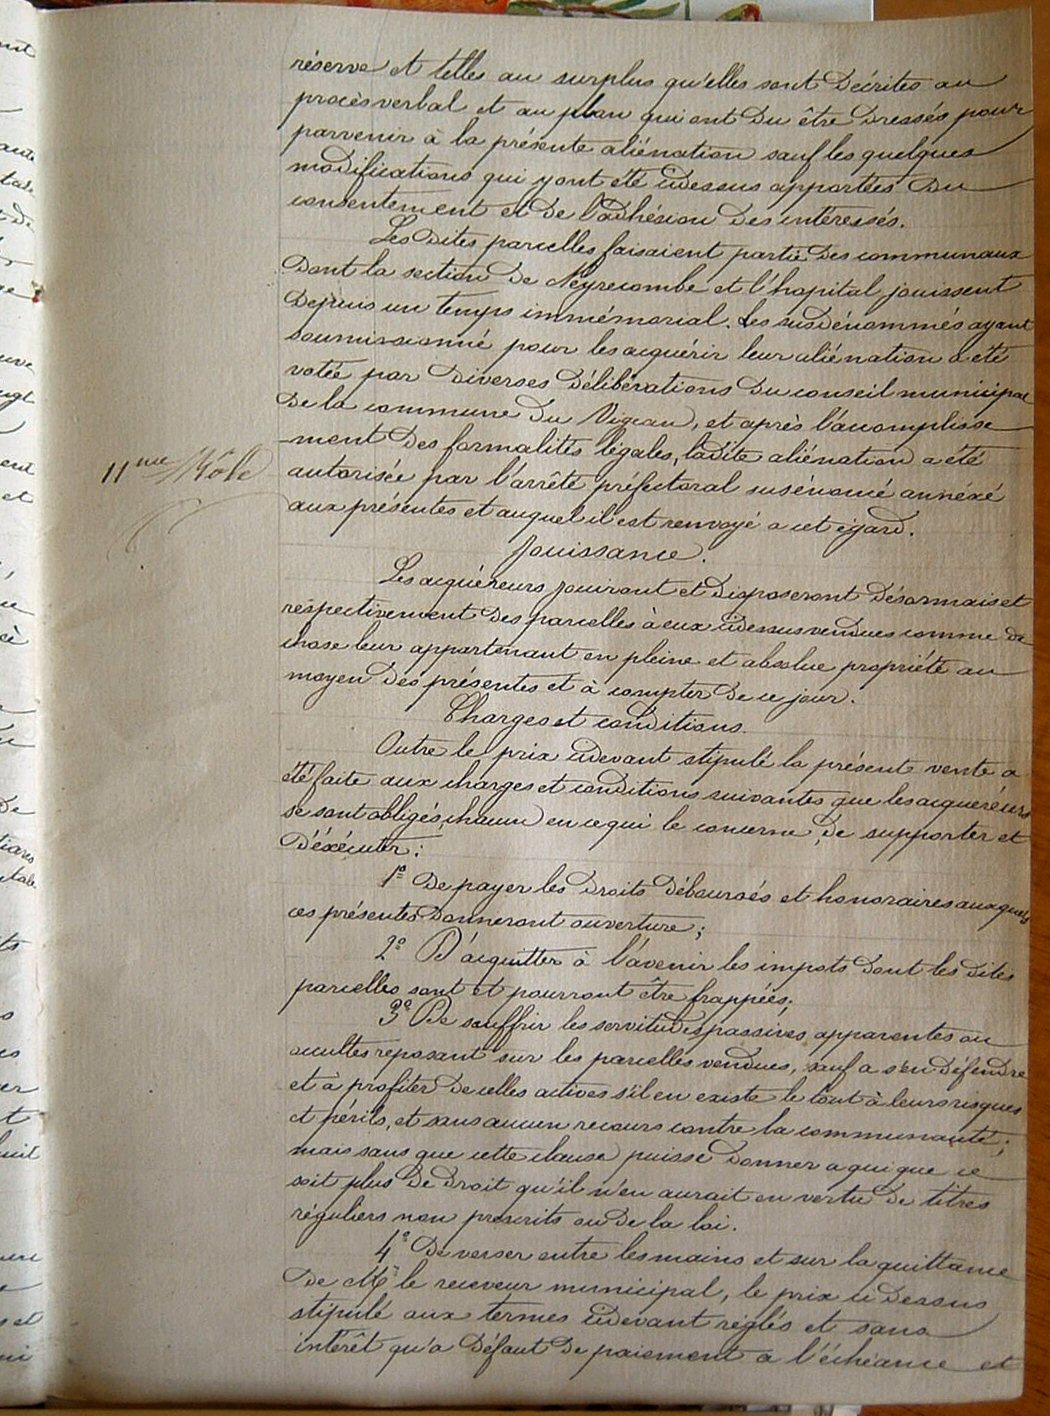 réserve et telles au surplus qu'elles sont décrites au
procès verbal et au plan qui ont du être dressés pour
parvenir à la présente aliénation sauf les quelques
modifications qui y ont été cidessus apportées du
consentement et de l'adhésion des intéressés.
Les dites parcelles faisaient partie des communaux
dont la section de Neyrecombe et l'hopital jouissent
depuis un temps immémorial. Les susdénommés ayant
soumissionné pour les acquérir leur aliénation a été
votée par diverses délibérations du conseil municipal
de la commune du Vigean, et après l'accomplisse
ment des formalités légales, ladite aliénation a été
11me Rôle
autorisée par l'arrêté préfectoral susénoncé annéxé
aux présentes et auquel il est renvoyé a cet égard.
Jouissance.
Les acquéreurs jouiront et disposeront désormais et
respectivement des parcelles à eux cidessus vendues comme de
chose leur appartenant en pleine et absolue propriété au
moyen des présentes et à compter de ce jour.
Charges et conditions.
Outre le prix cidevant stipulé la présent vente a
été faite aux charges et conditions suivantes que les acquéreurs
se sont obligés, chacun en ce qui le concerne, de supporter et
d'éxécuter:
1º De payer les droits déboursés et honoraires auxquels
ces présentes donneront ouverture;
2º D'acquitter à l'avenir les impots dont les dites
parcelles sont et pourront être frappées;
3º De souffrir les servitudes passives, apparentes ou
occultes reposant sur les parcelles vendues, sauf a s'en défendre
et à profiter de celles actives s'il en existe le tout à leurs risques
et périls, et sans aucun recours contre la communauté;
mais sans que cette clause puisse donner a qui que ce
soit plus de droit qu'il n'en aurait en vertu de titres
réguliers non prescrits ou de la loi.
4º De verser entre les mains et sur la quittance
de Mr le receveur municipal, le prix ci dessus
stipulé aux termes cidevant réglés et sans
intérêt qu'a défaut de paiement a l'échéance et